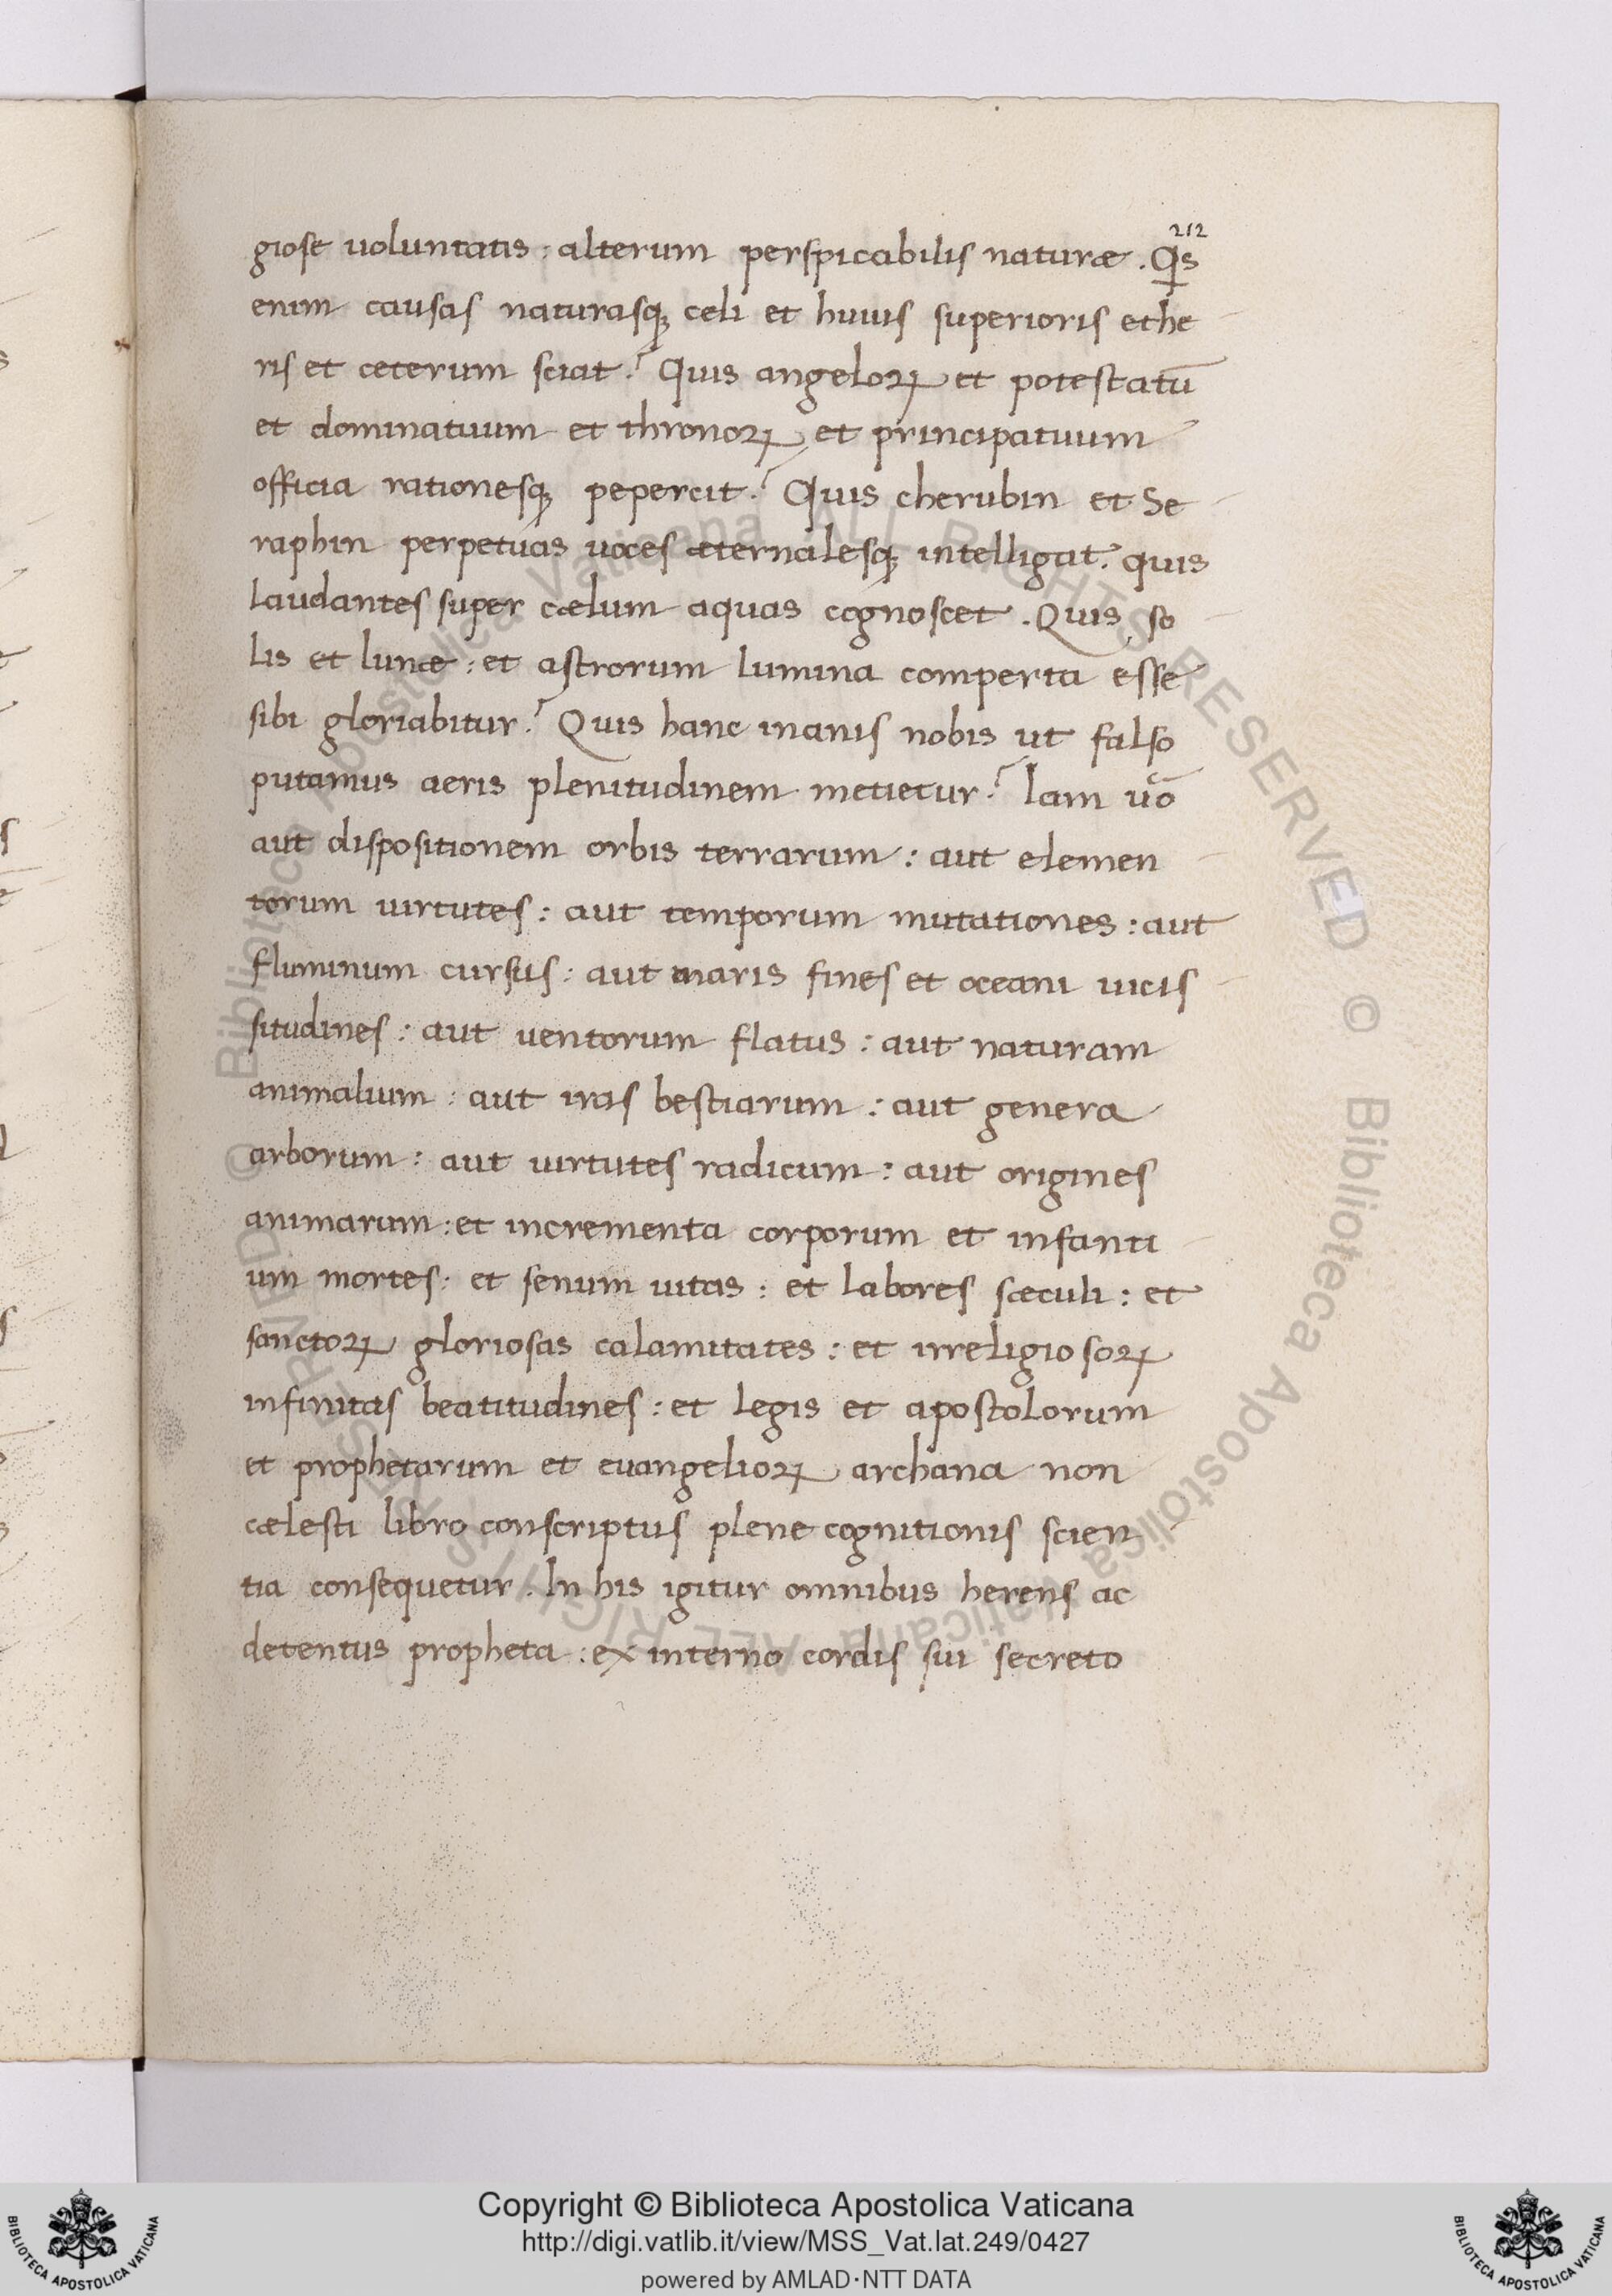 212
giose uoluntatis : alterum perspicabilis naturæ . Qis
enim causas naturasq; celi et huius superioris ethe
ris et ceterum sciat? Quis angeloꝝ et potestatū
et dominatuum et thronoꝝ et principatuum
officia rationesq; pepercit? Quis cherubin et Se
raphin perpetuas uoces æternalesq; intelligat? quis
laudantes super cælum aquas cognoscet . Quis so
lis et lunæ : et astrorum lumina comperta esse
sibi gloriabitur? Quis hanc inanis nobis ut falso
putamus aeris plenitudinem metietur? Iam uo᷒
aut dispositionem orbis terrarum : aut elemen
torum uirtutes : aut temporum mutationes : aut
fluminum cursus : aut maris fines et oceani uicis
situdines : aut uentorum flatus : aut naturam
animalium : aut iras bestiarum : aut genera
arborum : aut uirtutes radicum : aut origines
animarum : et incrementa corporum et infanti
um mortes : et senum uitas : et labores sæculi : et
sanctoꝝ gloriosas calamitates : et irreligiosoꝝ
infinitas beatitudines : et legis et apostolorum
et prophetarum et euangelioꝝ archana non
cælesti libro conscriptus plene cognitionis scien
tia consequetur . In his igitur omnibus herens ac
detentus propheta : ex interno cordis sui secreto
© Biblioteca Apostolica Vaticana ALL RIGHTS RESERVED © Biblioteca Apostolica Vaticana ALL RIGHTS RESERVED
Copyright © Biblioteca Apostolica Vaticana
http://digi.vatlib.it/view/MSS_Vat.lat.249/0427
powered by AMLAD·NTT DATA
BIBLIOTECA APOSTOLICA VATICANA
BIBLIOTECA APOSTOLICA VATICANA